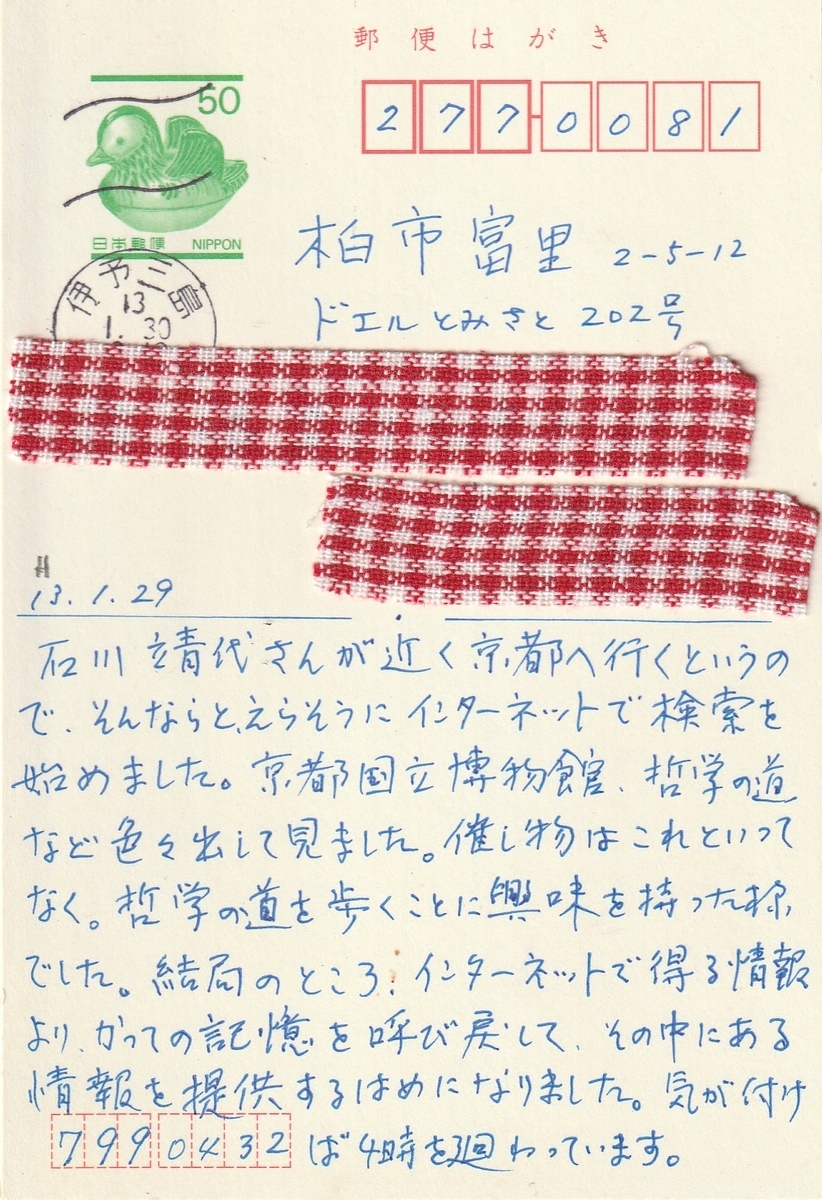 郵便はがき
50
日本郵便 NIPPON
277-0081
伊予三島
13
1.30
柏市富里 2-5-12
ドエルとみさと 202号
H
13.1.29
石川靖代さんが近く京都へ行くというの
で、そんならと、えらそうにインターネットで検索を
始めました。京都国立博物館、哲学の道
など色々出して見ました。催し物はこれといって
なく。哲学の道を歩くことに興味を持った様
でした。結局のところ、インターネットで得る情報
より、かつての記憶を呼び戻して、その中にある
情報を提供するはめになりました。気が付け
ば4時を廻わっています。
7990432